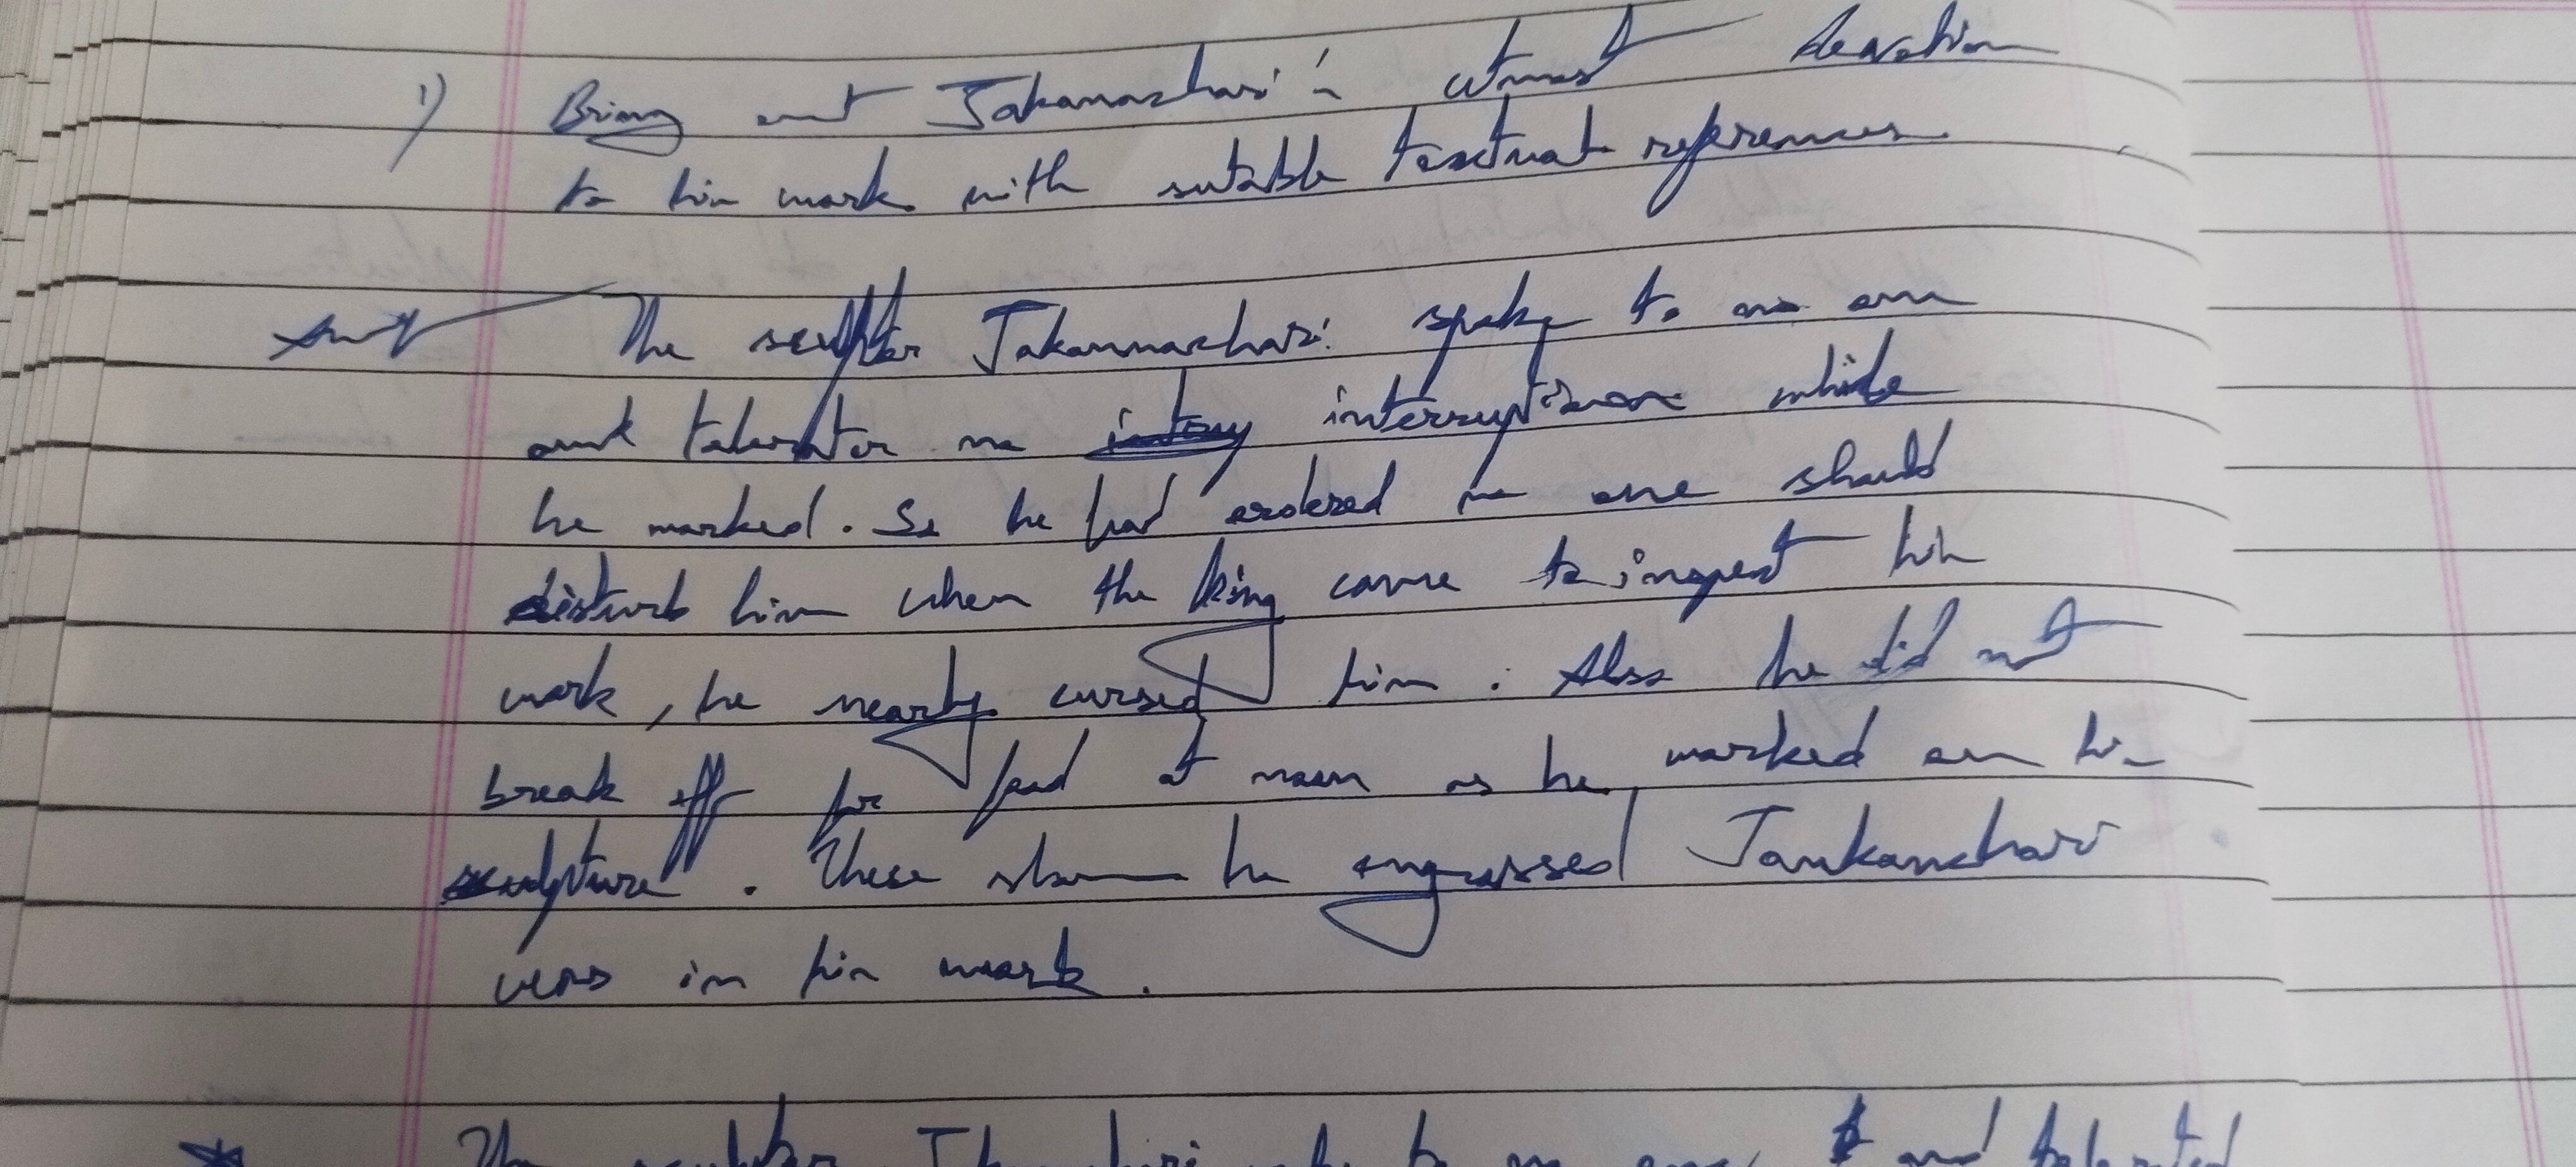 1) Bring out Jakanachari's utmost devotion
to his work with sutable textual references.
Ans The sculptor Jakannachari spoke to no one
and tolerator no interruption while
he worked. So he had ordered no one should
disturb him when the king came to inspect his
work, he nearly cursed him. Also he did not
break off for food at noon as he worked on his
sculpture. These shows he engrossed Jankanchari
was in his work.
The sculptor to no one, and tolerated